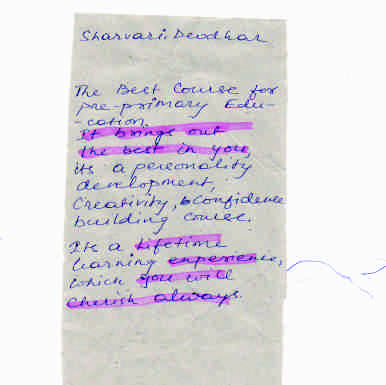 Sharvari Deodhar
The Best Course for
pre-primary Edu-
-cation.
It brings out
the best in you,
its a personality
development,
Creativity, confidence
building course.
Its a lifetime
learning experience,
which you will
cherish always.